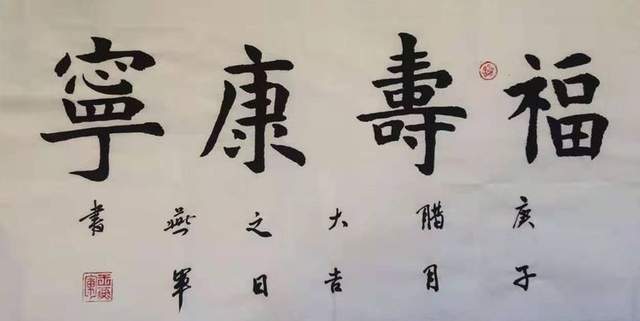 福壽康寧
庚子
腊月
大吉
之日
燕軍
書